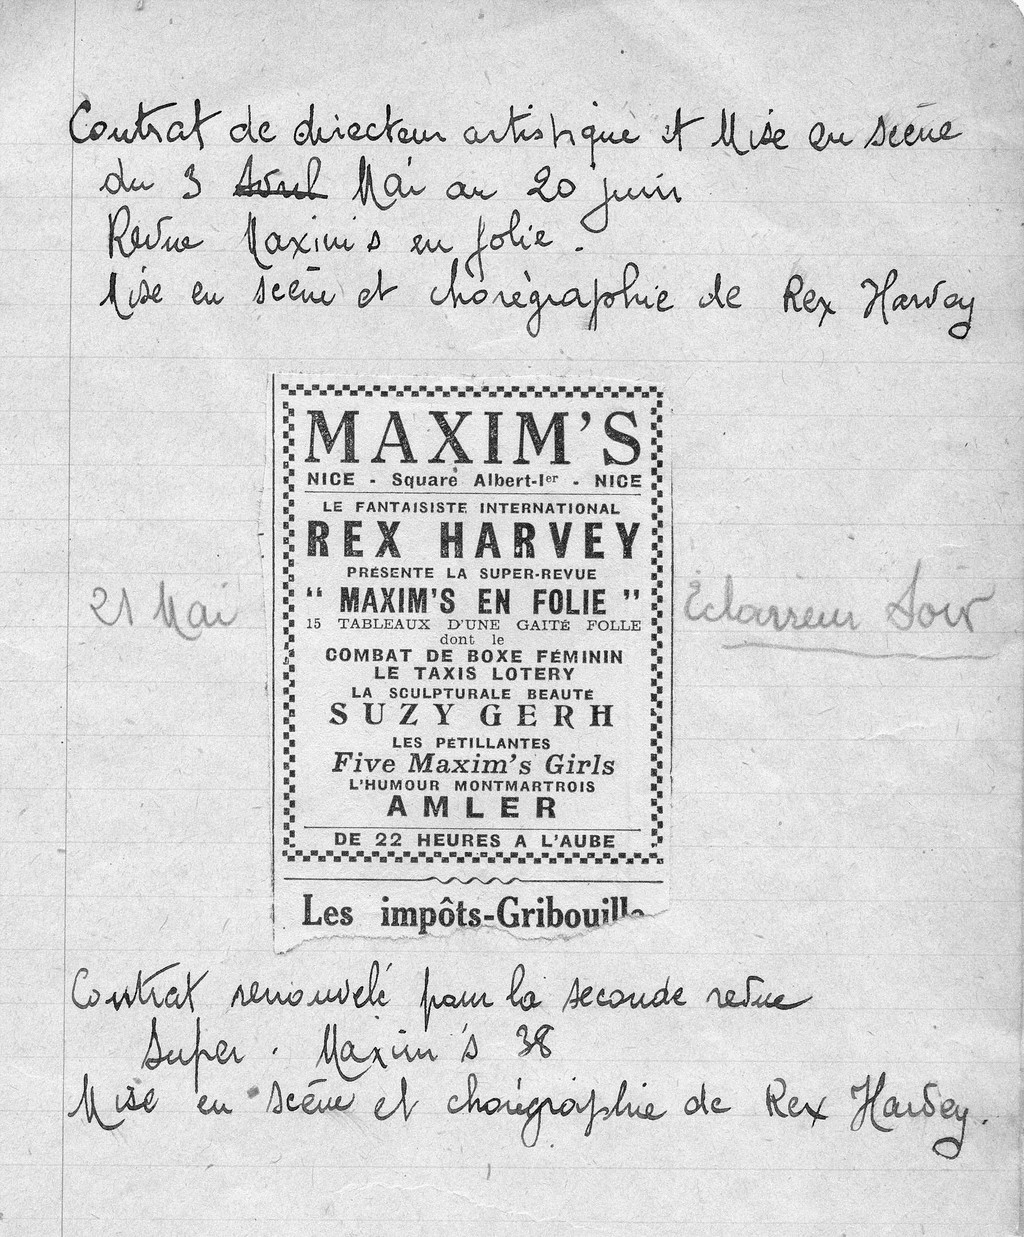 Contrat de directeur artistique et Mise en scène
du 3 Avril Mai au 20 juin
Revue Maxim's en folie.
Mise en scène et chorégraphie de Rex Harvey
MAXIM'S
NICE - Square Albert-Ier - NICE
LE FANTAISISTE INTERNATIONAL
REX HARVEY
PRÉSENTE LA SUPER-REVUE
" MAXIM'S EN FOLIE "
21 Mai
Eclaireur Soir
15 TABLEAUX D'UNE GAITÉ FOLLE
dont le
COMBAT DE BOXE FÉMININ
LE TAXIS LOTERY
LA SCULPTURALE BEAUTÉ
SUZY GERH
LES PÉTILLANTES
Five Maxim's Girls
L'HUMOUR MONTMARTROIS
AMLER
DE 22 HEURES A L'AUBE
Les impôts-Gribouille
Contrat renouvelé pour la seconde revue
Super. Maxim's 38
Mise en scène et chorégraphie de Rex Harvey.